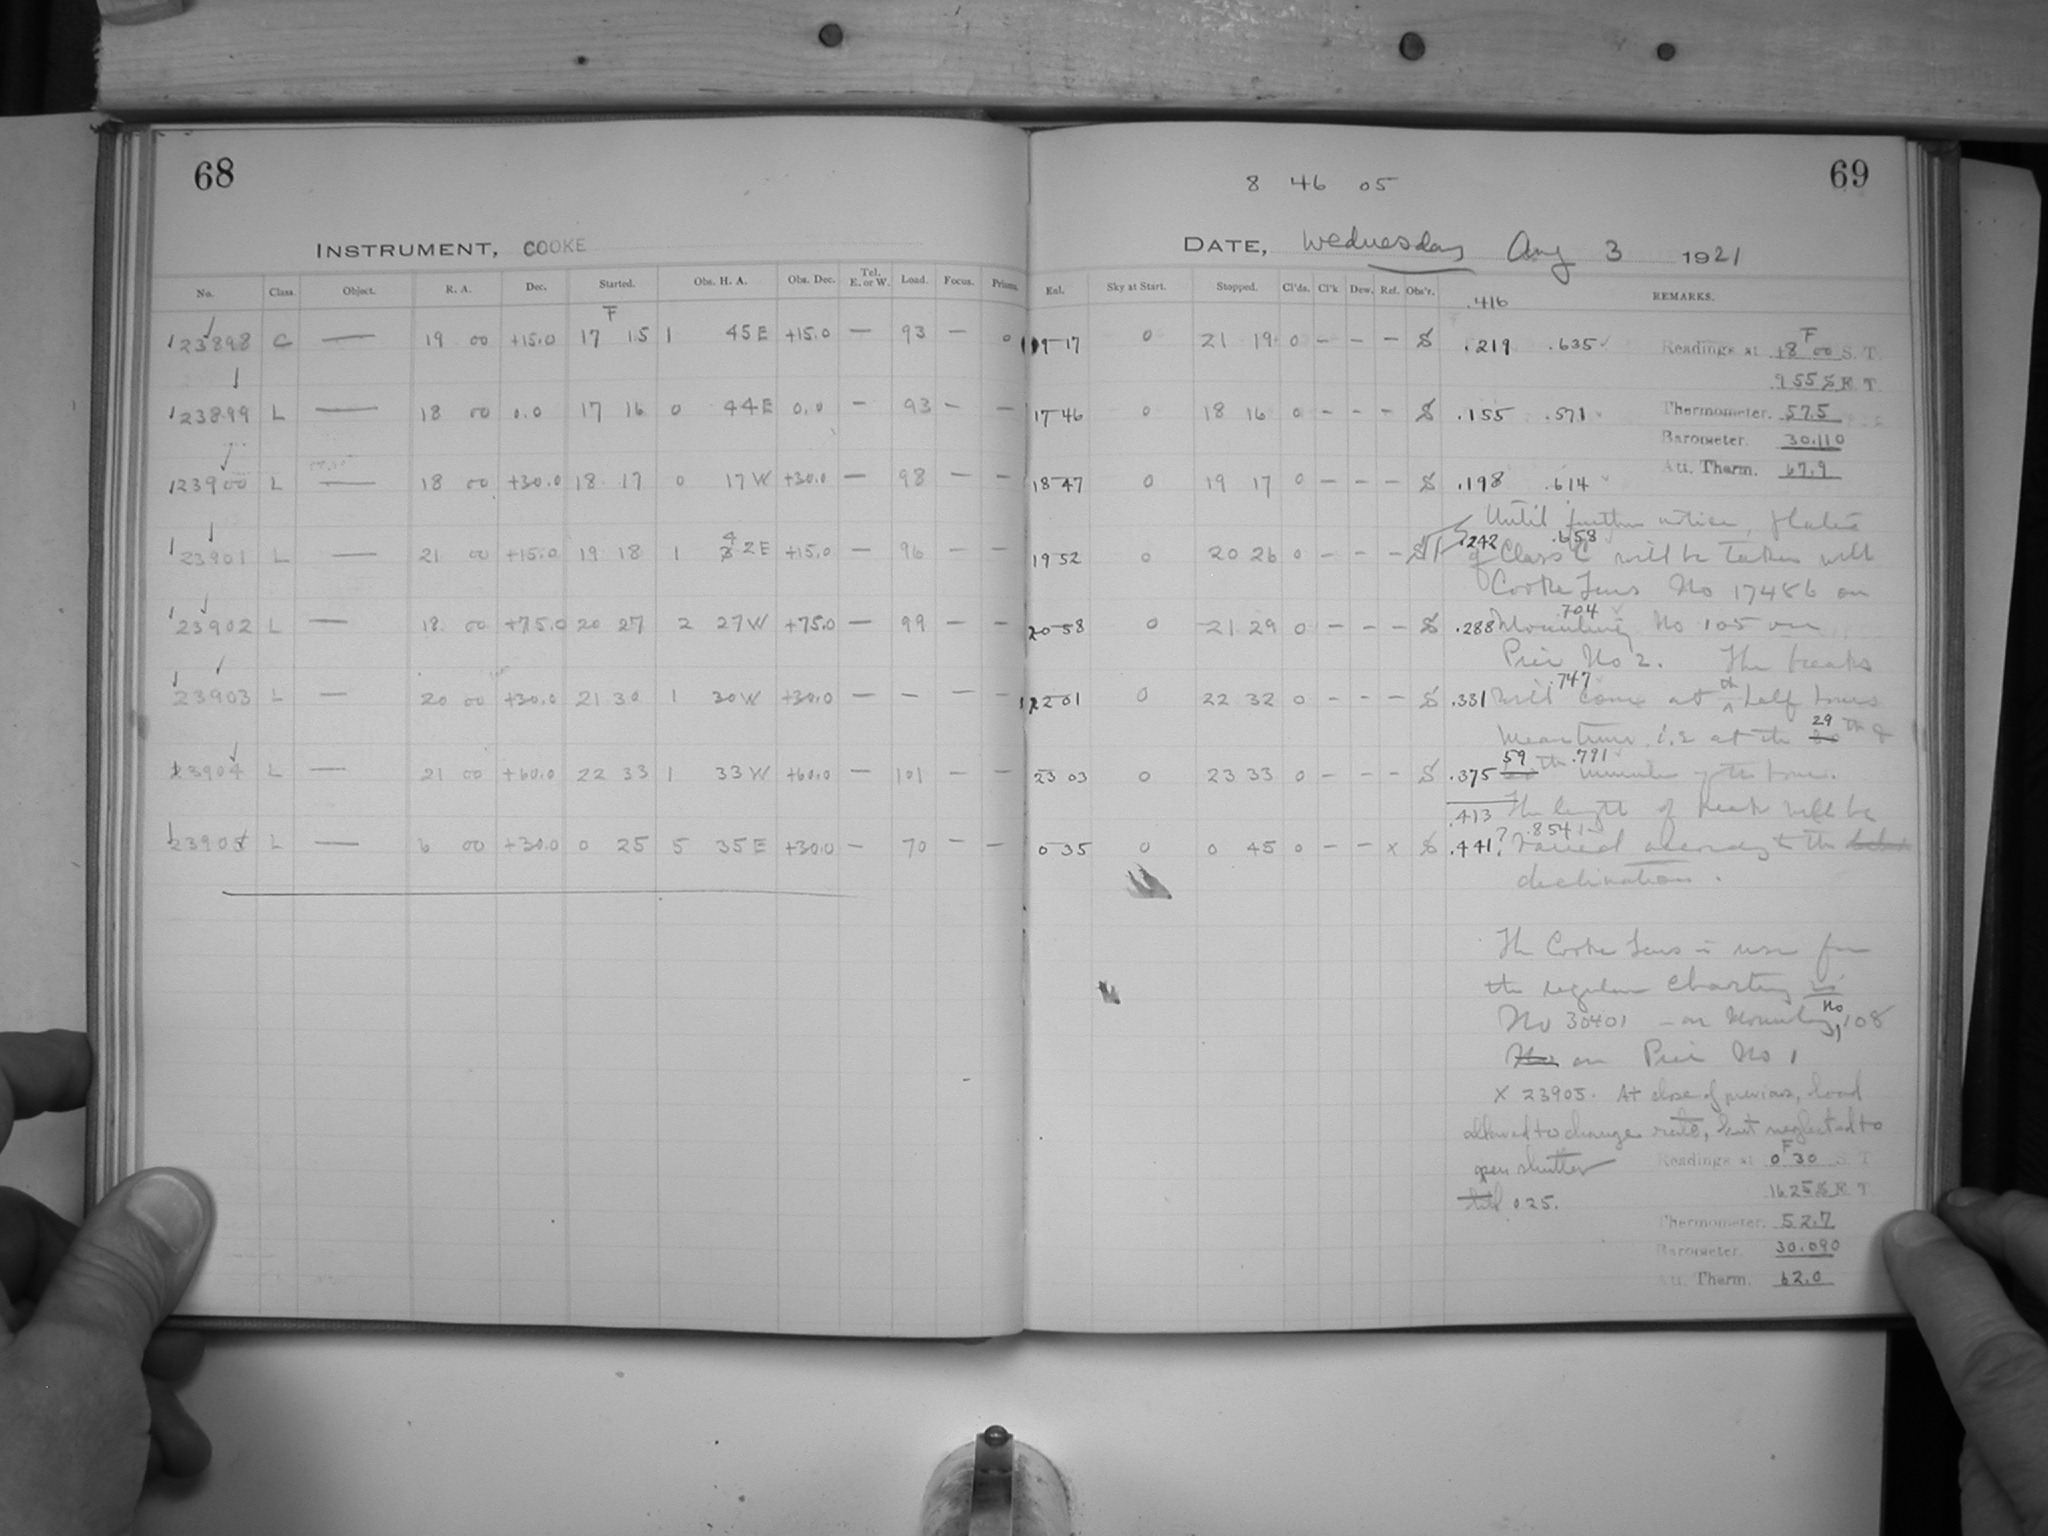 68
INSTRUMENT, COOKE
No. Class. Object. R. A. Dec. Started. Obs. H. A. Obs. Dec. Tel. E. or W. Load. Focus. Prisms.
F
23898 C — 19 00 +15.0 17 15 1 45 E +15.0 — 93 — 0
23899 L — 18 00 0.0 17 16 0 44 E 0.0 — 93 — —
23900 L — 18 00 +30.0 18 17 0 17 W +30.0 — 98 — —
4
23901 L — 21 00 +15.0 19 18 1 2 E +15.0 — 96 — —
23902 L — 18 00 +75.0 20 27 2 27 W +75.0 — 99 — —
23903 L — 20 00 +30.0 21 30 1 30 W +30.0 — — — —
23904 L — 21 00 +60.0 22 33 1 33 W +60.0 — 101 — —
23905 L — 6 00 +30.0 0 25 5 35 E +30.0 — 70 — —
69
8 46 05
DATE, Wednesday Aug 3 1921
Exl. Sky at Start. Stopped. Cl'ds. Cl'k Dew. Ref. Obs'r. .416 REMARKS.
19 17 0 21 19 0 — — — S .219 .635
17 46 0 18 16 0 — — — S .155 .571
18 47 0 19 17 0 — — — S .198 .614
19 52 0 20 26 0 — — — S .242 .658
20 58 0 21 29 0 — — — S .288 .704
22 01 0 22 32 0 — — — S .331 .747
23 03 0 23 33 0 — — — S .375 .791
.413
0 35 0 0 45 0 — — x S .441? .854
F
Readings at 18 00 S. T.
9 55 S E. T.
Thermometer. 57.5
Barometer. 30.110
Att. Therm. 67.9
Until further notice, plates
of Class C will be taken with
Cooke Lens No 17486 on
Mounting No 105 on
Pier No 2. The breaks
will come at th half hours
Mean time, i.e at the 29 th &
59 th minute of the hour.
The length of break will be
varied according to the
declination.
The Cooke Lens in use for
the regular Charting is
No 30401 — on Mounting No 108
on Pier No 1
X 23905. At close of previous, load
allowed to change rate, but neglected to
open shutter
till 0 25.
F
Readings at 0 30 S. T
16 25 S E. T
Thermometer. 52.7
Barometer. 30.090
Att. Therm. 62.0